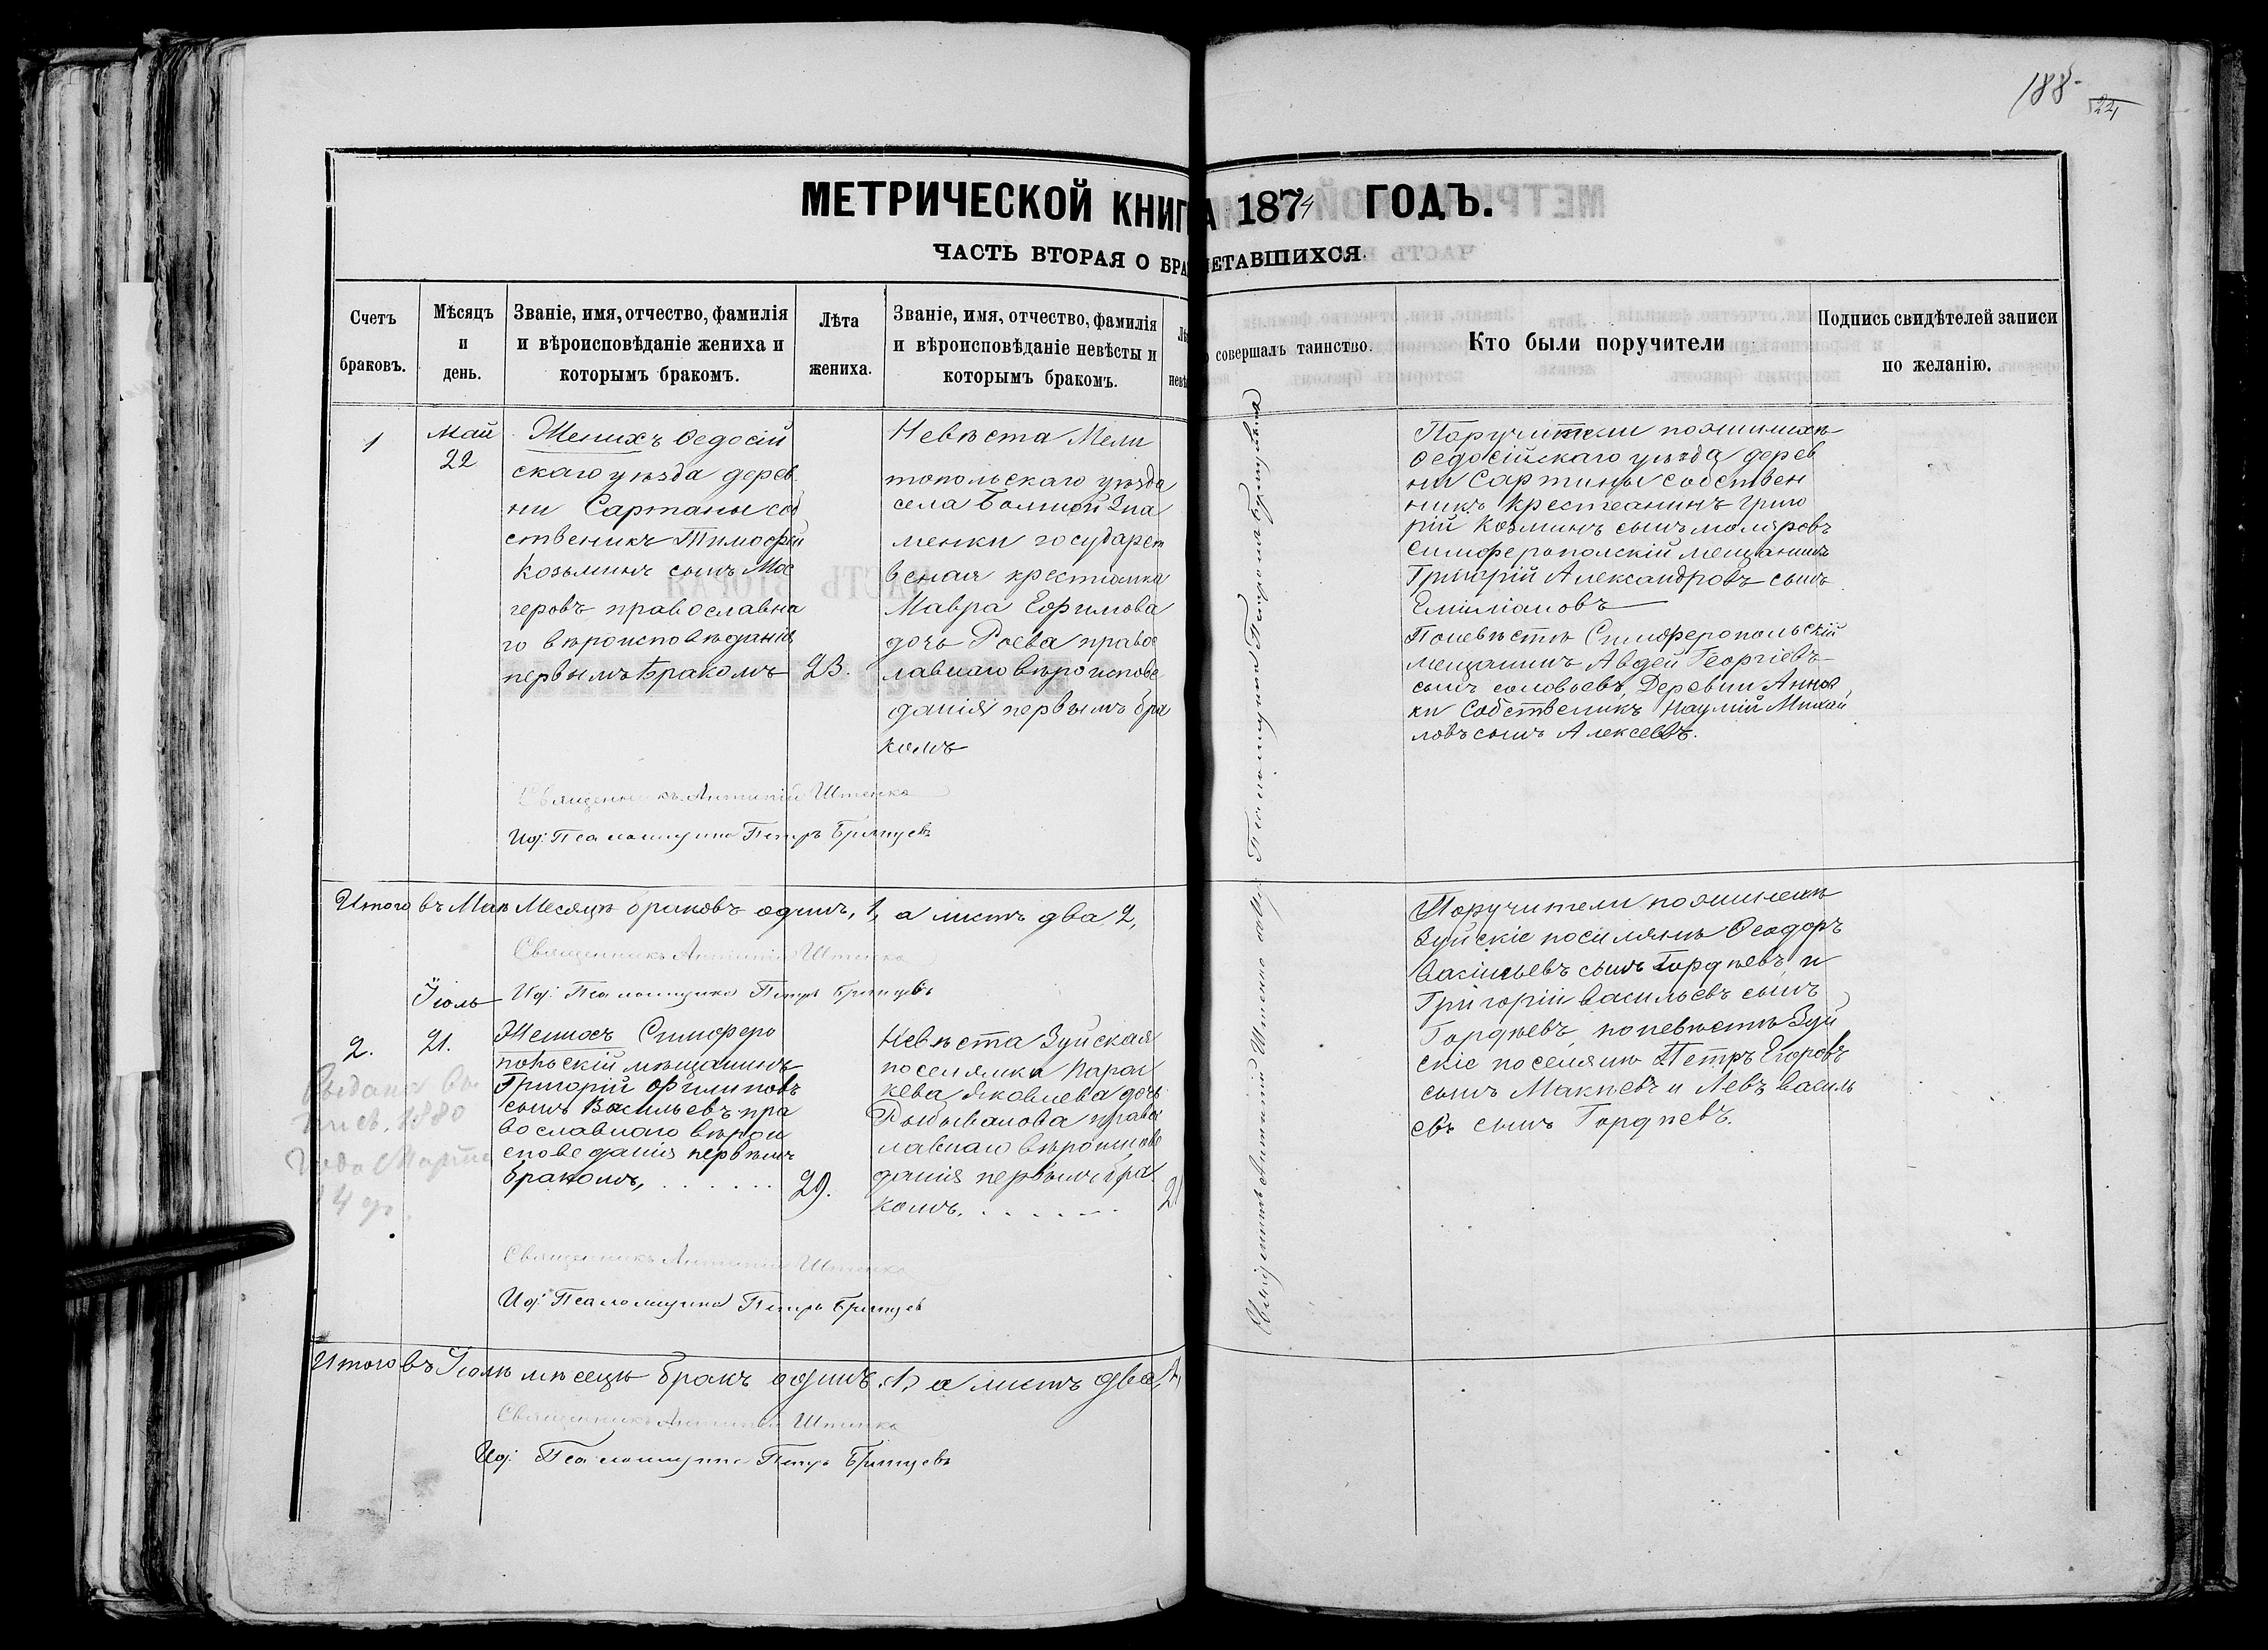 188
24
МЕТРИЧЕСКОЙ КНИГ
А 1874 ГОДЪ.
ЧАСТЬ ВТОРАЯ О БРА
ЧЕТАВШИХСЯ.
Счетъ браковъ.
Мѣсяцъ и день.
Званіе, имя, отчество, фамилія
и вѣроисповѣданіе жениха и
которымъ бракомъ.
Лѣта жениха.
Званіе, имя, отчество, фамилія
и вѣроисповѣданіе невѣсты и
которымъ бракомъ.
совершалъ таинство.
Кто были поручители
Подпись свидѣтелей записи
по желанію.
1
Май
22
Женихъ Ѳедосій
скаго уѣзда дерев
ни Сартаны соб
ственикъ Тимофей
Козьминъ сынъ
геровъ православна
го вѣроисповѣданія
первымъ бракомъ
23.
Невѣста Мели
топольскаго уѣзда
села Болшой Зна
менки государст
веная крестianка
Мавра Ефимова
дочь Роева правос
лавнаго вѣроиспове
данія первымъ бра
комъ
Поручители пожинихѣ
Ѳедосійскаго уѣзда дерев
ни Сартаны собствен
никъ крестеанинъ Григо
рій Козминъ сынъ моляровъ
Симферополскій мещанинъ
Григорій Александровъ сынъ
Емиліановъ
Поневѣстѣ Симферопольскій
мещанинъ Авдей Георгіевъ
сынъ соловьевъ, Деревни Аннов
ки собственикъ Наумій Михай
ловъ сынъ Алексеевъ.
Священникъ Антипій Штенко
Ид: Псаломщика Петръ Брянцевъ
Итого въ Маѣ Месяцѣ браковъ одинъ, 1, а листъ два 2,
Священникъ Антипій Штенко
Ид: Псаломщика Петръ Брянцевъ
Іюль
2.
21.
Женихъ Симферо
польскій мѣщанинъ
Григорій Филиповъ
сынъ Васильевъ пра
вославнаго вѣрои
споведанія первымъ
бракомъ,
29.
Невѣста Зуйская
поселянка Парас
кева Яковлева дочь
правос
лавнаго вѣроиспове
данія первымъ бра
комъ.
2
Поручители пожинехѣ
Зуйскіе посиляны Ѳеодоръ
Васильевъ сынъ Гордѣевъ, и
Григорій Васильевъ сынъ
Гордѣевъ, поневѣстѣ Зуй
скіе поселяны Петръ Егоровъ
сынъ Макѣевъ и Левъ Василь
евъ сынъ Гордѣевъ.
Выдана вы
пись, 1880
года Марта
14 дн.
Священникъ Антипій Штенко
Ид: Псаломщика Петръ Брянцевъ
Итого въ Іюлѣ мѣсецѣ бракъ одинъ, 1, а листъ два,
Священникъ Антипій Штенко
Ид: Псаломщика Петръ Брянцевъ